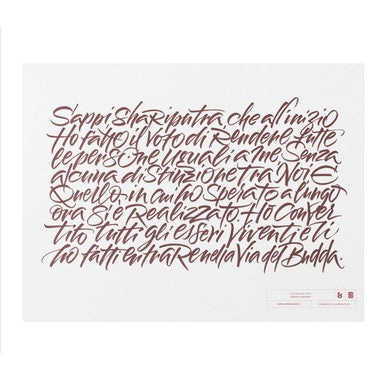 Sappi Shariputra che all'inizio
Ho fatto il voto di Rendere tutte
le persone uguali a me, Senza
alcuna distinzione tra Noi E
Quello in cui ho Sperato a lungo
ora Si è Realizzato. Ho Conver
tito tutti gli esseri Viventi e li
ho fatti entrare nella Via del Budda.